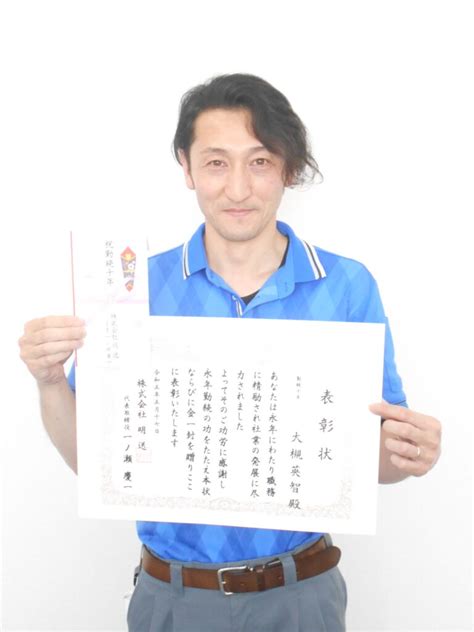 表彰状
勤続十年
大槻英智殿
あなたは永年にわたり職務
に精勤され社業の発展に尽
力されました
よってそのご功労に感謝し
永年勤続の功をたたえ本状
ならびに金一封を贈りここ
に表彰いたします
株式会社 明送
代表取締役 一ノ瀬 慶一
祝勤続十年